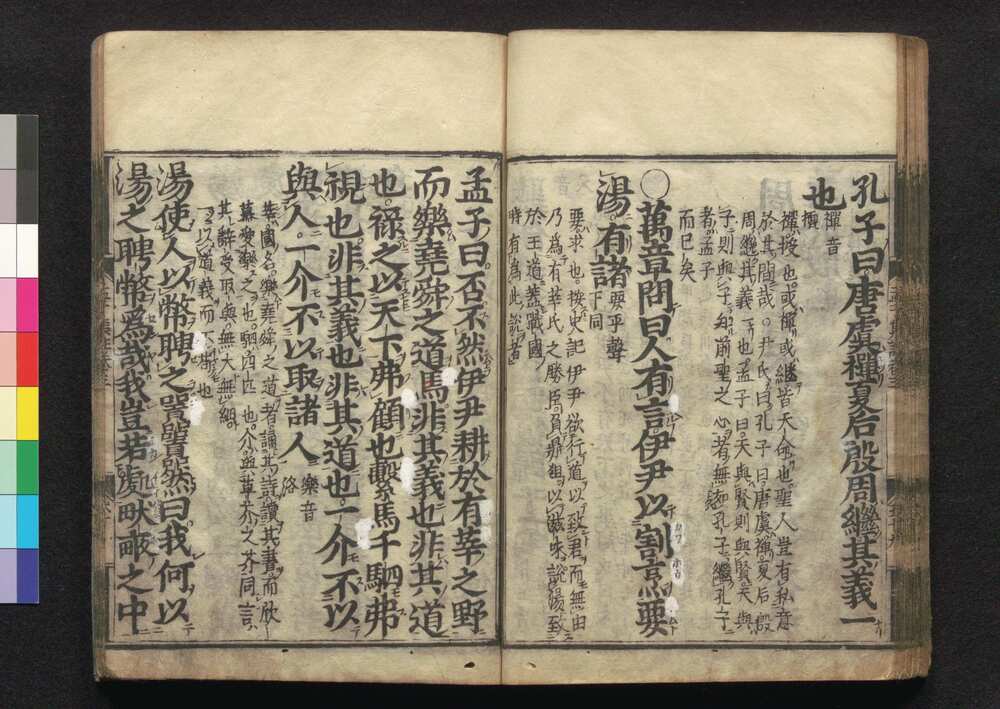 孔子曰唐虞禪夏后殷周繼其義一
也
禪音
擅
禪授也或禪或繼皆天命也聖人豈有私意
於其間哉○尹氏曰孔子曰唐虞禪夏后殷
周繼其義一也孟子曰天與賢則與賢天與
子則與子知前聖之心者無如孔子繼孔子
者孟子
而已矣
○萬章問曰人有言伊尹以割烹要
湯有諸
要平聲
下同
要求也按史記伊尹欲行道以致君而無由
乃爲有莘氏之媵臣負鼎俎以滋味說湯致
於王道蓋戰國
時有爲此說者
孟子曰否不然伊尹耕於有莘之野
而樂堯舜之道焉非其義也非其道
也祿之以天下弗顧也繫馬千駟弗
視也非其義也非其道也一介不以
與人一介不以取諸人
樂音
洛
莘國名樂堯舜之道者誦其詩讀其書而欣
慕愛樂之也駟四匹也介與草芥之芥同言
其辭受取與無大無細
一以道義而不苟也
湯使人以幣聘之囂囂然曰我何以
湯之聘幣爲哉我豈若處畎畝之中